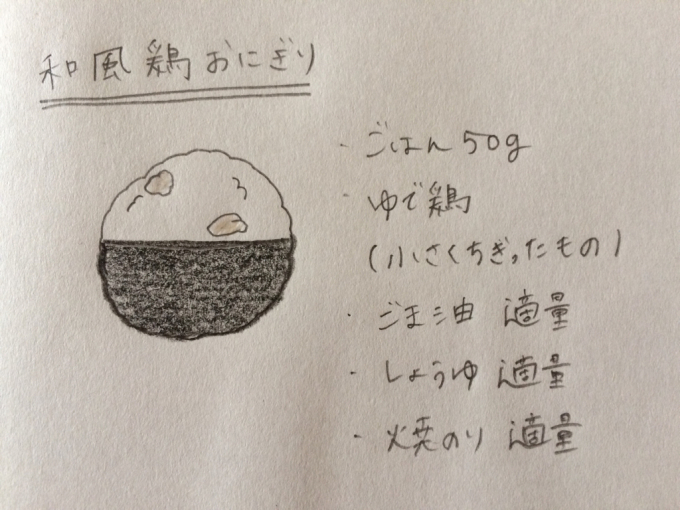 和風鶏おにぎり
・ごはん50g
・ゆで鶏
(小さくちぎったもの)
・ごま油 適量
・しょうゆ 適量
・焼のり 適量